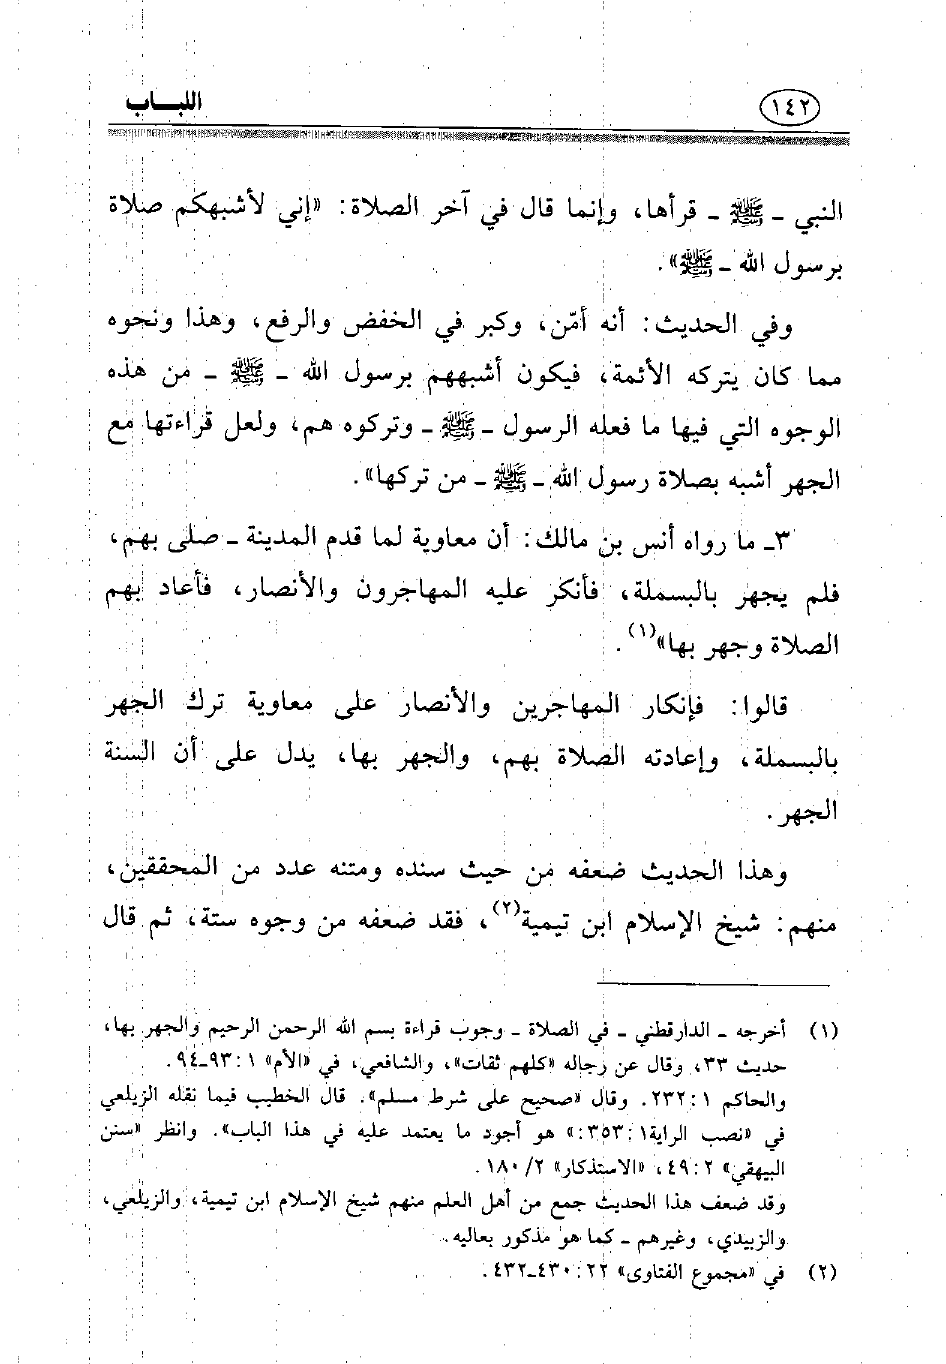 ١٤٢
اللبـــاب
النبي ـ ﷺ ـ قرأها، وإنما قال في آخر الصلاة: «إني لأشبهكم صلاة
برسول الله ـ ﷺ».
وفي الحديث: أنه أمّن، وكبر في الخفض والرفع، وهذا ونحوه
مما كان يتركه الأئمة، فيكون أشبههم برسول الله ـ ﷺ ـ من هذه
الوجوه التي فيها ما فعله الرسول ـ ﷺ ـ وتركوه هم، ولعل قراءتها مع
الجهر أشبه بصلاة رسول الله ـ ﷺ ـ من تركها».
٣ـ ما رواه أنس بن مالك: أن معاوية لما قدم المدينة ـ صلى بهم،
فلم يجهر بالبسملة، فأنكر عليه المهاجرون والأنصار، فأعاد بهم
الصلاة وجهر بها»(١).
قالوا: فإنكار المهاجرين والأنصار على معاوية ترك الجهر
بالبسملة، وإعادته الصلاة بهم، والجهر بها، يدل على أن السنة
الجهر.
وهذا الحديث ضعفه من حيث سنده ومتنه عدد من المحققين،
منهم: شيخ الإسلام ابن تيمية(٢)، فقد ضعفه من وجوه ستة، ثم قال
(١) أخرجه ـ الدارقطني ـ في الصلاة ـ وجوب قراءة بسم الله الرحمن الرحيم والجهر بها،
حديث ٣٣، وقال عن رجاله «كلهم ثقات»، والشافعي، في «الأم» ١: ٩٣ـ٩٤.
والحاكم ١: ٢٣٢. وقال «صحيح على شرط مسلم». قال الخطيب فيما نقله الزيلعي
في «نصب الراية١: ٣٥٣:» هو أجود ما يعتمد عليه في هذا الباب». وانظر «سنن
البيهقي» ٢: ٤٩، «الاستذكار» ٢/ ١٨٠.
وقد ضعف هذا الحديث جمع من أهل العلم منهم شيخ الإسلام ابن تيمية، والزيلعي،
والزبيدي، وغيرهم ـ كما هو مذكور بعاليه.
(٢) في «مجموع الفتاوى» ٢٢: ٤٣٠ـ٤٣٢.